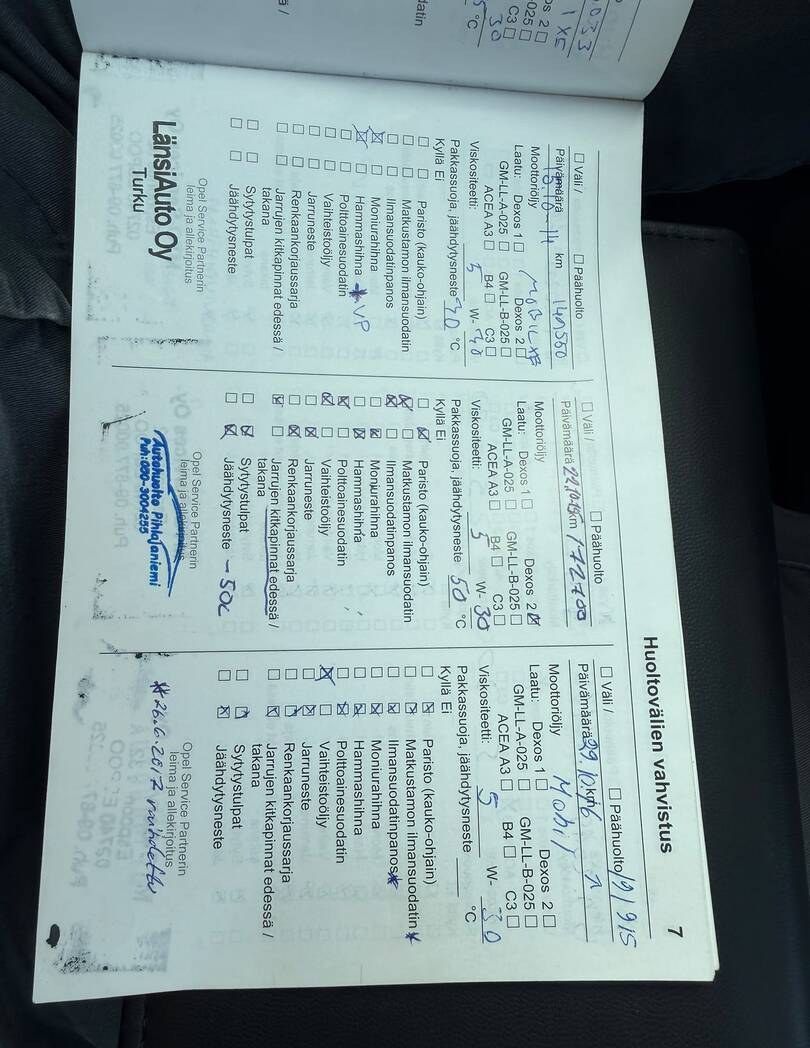 Huoltovälien vahvistus
7
Väli /
Päähuolto
Päivämäärä
km
Moottoriöljy
Laatu: Dexos 1 Dexos 2
GM-LL-A-025 GM-LL-B-025
ACEA A3 B4 C3
Viskositeetti: 5 W- 30
Pakkassuoja, jäähdytysneste °C
Kyllä Ei
Paristo (kauko-ohjain)
Matkustamon ilmansuodatin
Ilmansuodatinpanos
Moniurahihna
Hammashihna VP
Polttoainesuodatin
Vaihteistoöljy
Jarruneste
Renkaankorjaussarja
Jarrujen kitkapinnat edessä /
takana
Sytytystulpat
Jäähdytysneste
Opel Service Partnerin
leima ja allekirjoitus
LänsiAuto Oy
Turku
Väli /
Päähuolto
Päivämäärä km 172700
Moottoriöljy
Laatu: Dexos 1 Dexos 2
GM-LL-A-025 GM-LL-B-025
ACEA A3 B4 C3
Viskositeetti: 5 W- 30
Pakkassuoja, jäähdytysneste 50 °C
Kyllä Ei
Paristo (kauko-ohjain)
Matkustamon ilmansuodatin
Ilmansuodatinpanos
Moniurahihna
Hammashihna
Polttoainesuodatin
Vaihteistoöljy
Jarruneste
Renkaankorjaussarja
Jarrujen kitkapinnat edessä /
takana
Sytytystulpat
Jäähdytysneste -50c
Opel Service Partnerin
leima ja allekirjoitus
Autohuolto Pihlajaniemi
Väli /
Päähuolto
Päivämäärä 29.10.16 km
Moottoriöljy Mobil 1
Laatu: Dexos 1 Dexos 2
GM-LL-A-025 GM-LL-B-025
ACEA A3 B4 C3
Viskositeetti: 5 W- 30
Pakkassuoja, jäähdytysneste °C
Kyllä Ei
Paristo (kauko-ohjain)
Matkustamon ilmansuodatin *
Ilmansuodatinpanos *
Moniurahihna
Hammashihna
Polttoainesuodatin
Vaihteistoöljy
Jarruneste
Renkaankorjaussarja
Jarrujen kitkapinnat edessä /
takana
Sytytystulpat
Jäähdytysneste
Opel Service Partnerin
leima ja allekirjoitus
* 26.6.2017 vaihdettu